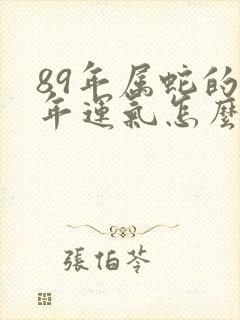 89年属蛇的
年運氣怎麼
張伯苓